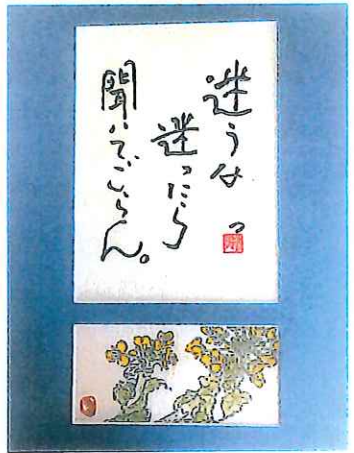 迷うなっ
迷ったら
聞いてごらん。